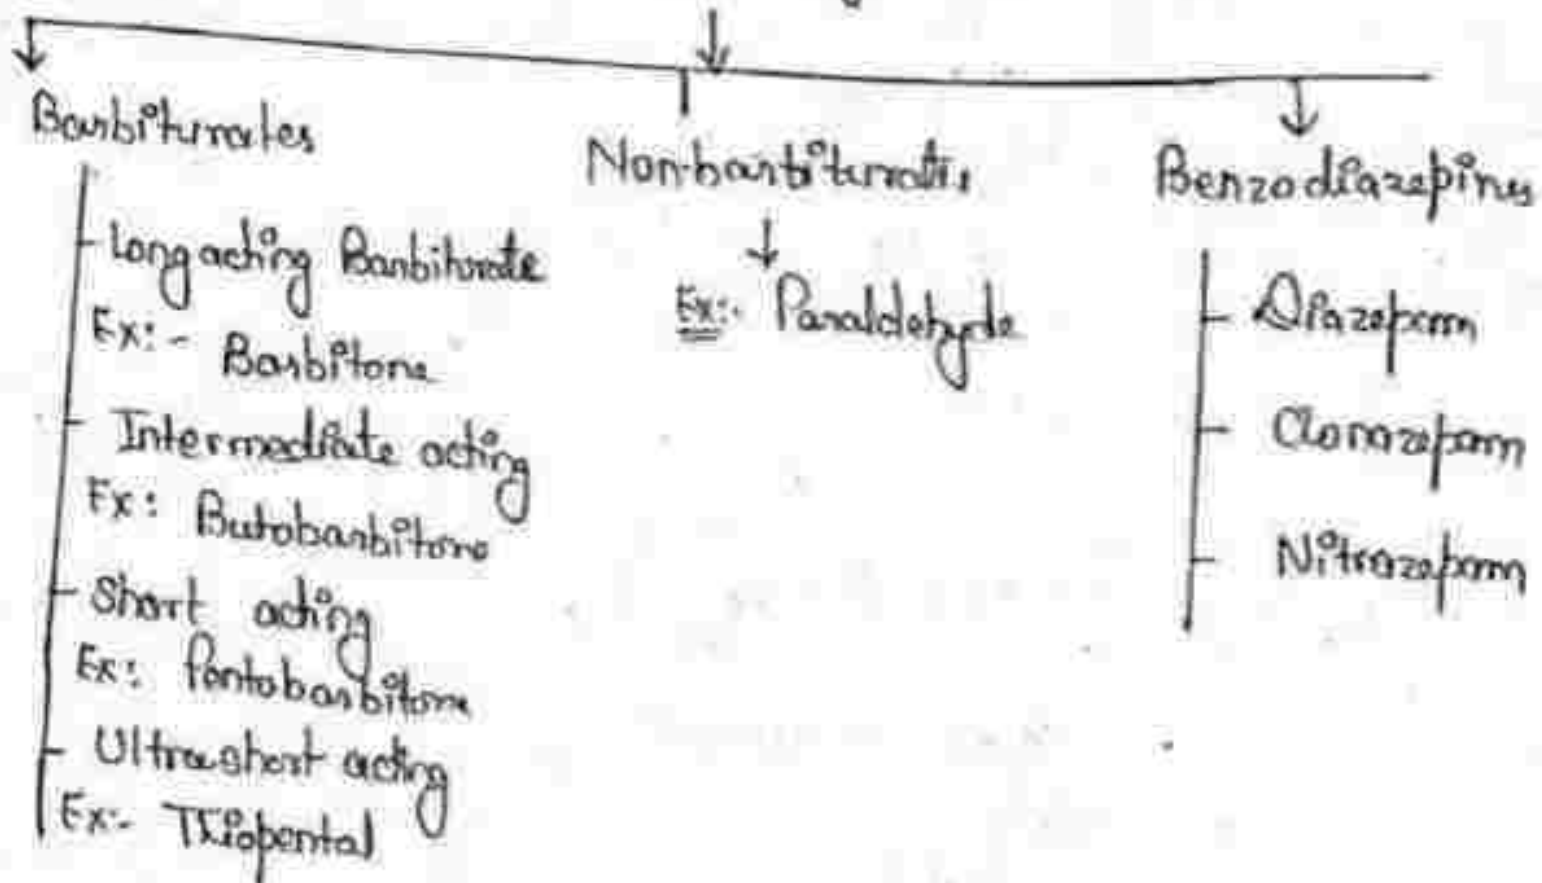 Barbiturates
Long acting Barbiturate
Ex:- Barbitone
Intermediate acting
Ex: Butobarbitone
Short acting
Ex: Pentobarbitone
Ultrashort acting
Ex:- Thiopental
Non-barbiturates
Ex:- Paraldehyde
Benzodiazepines
Diazepam
Clonazepam
Nitrazepam